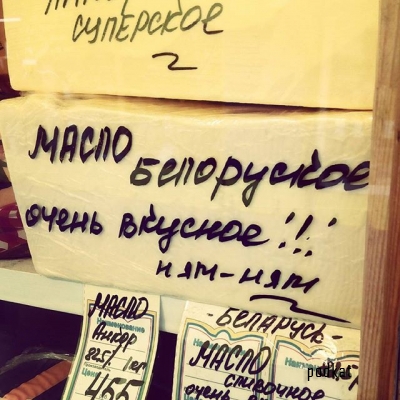 СУПЕРСКОЕ
МАСЛО
БЕЛОРУСКОЕ
очень вкусное!!!
ням-ням
МАСЛО
Анкор
825/1кг
455
-БЕЛАРУСЬ-
МАСЛО
сливочное
очень